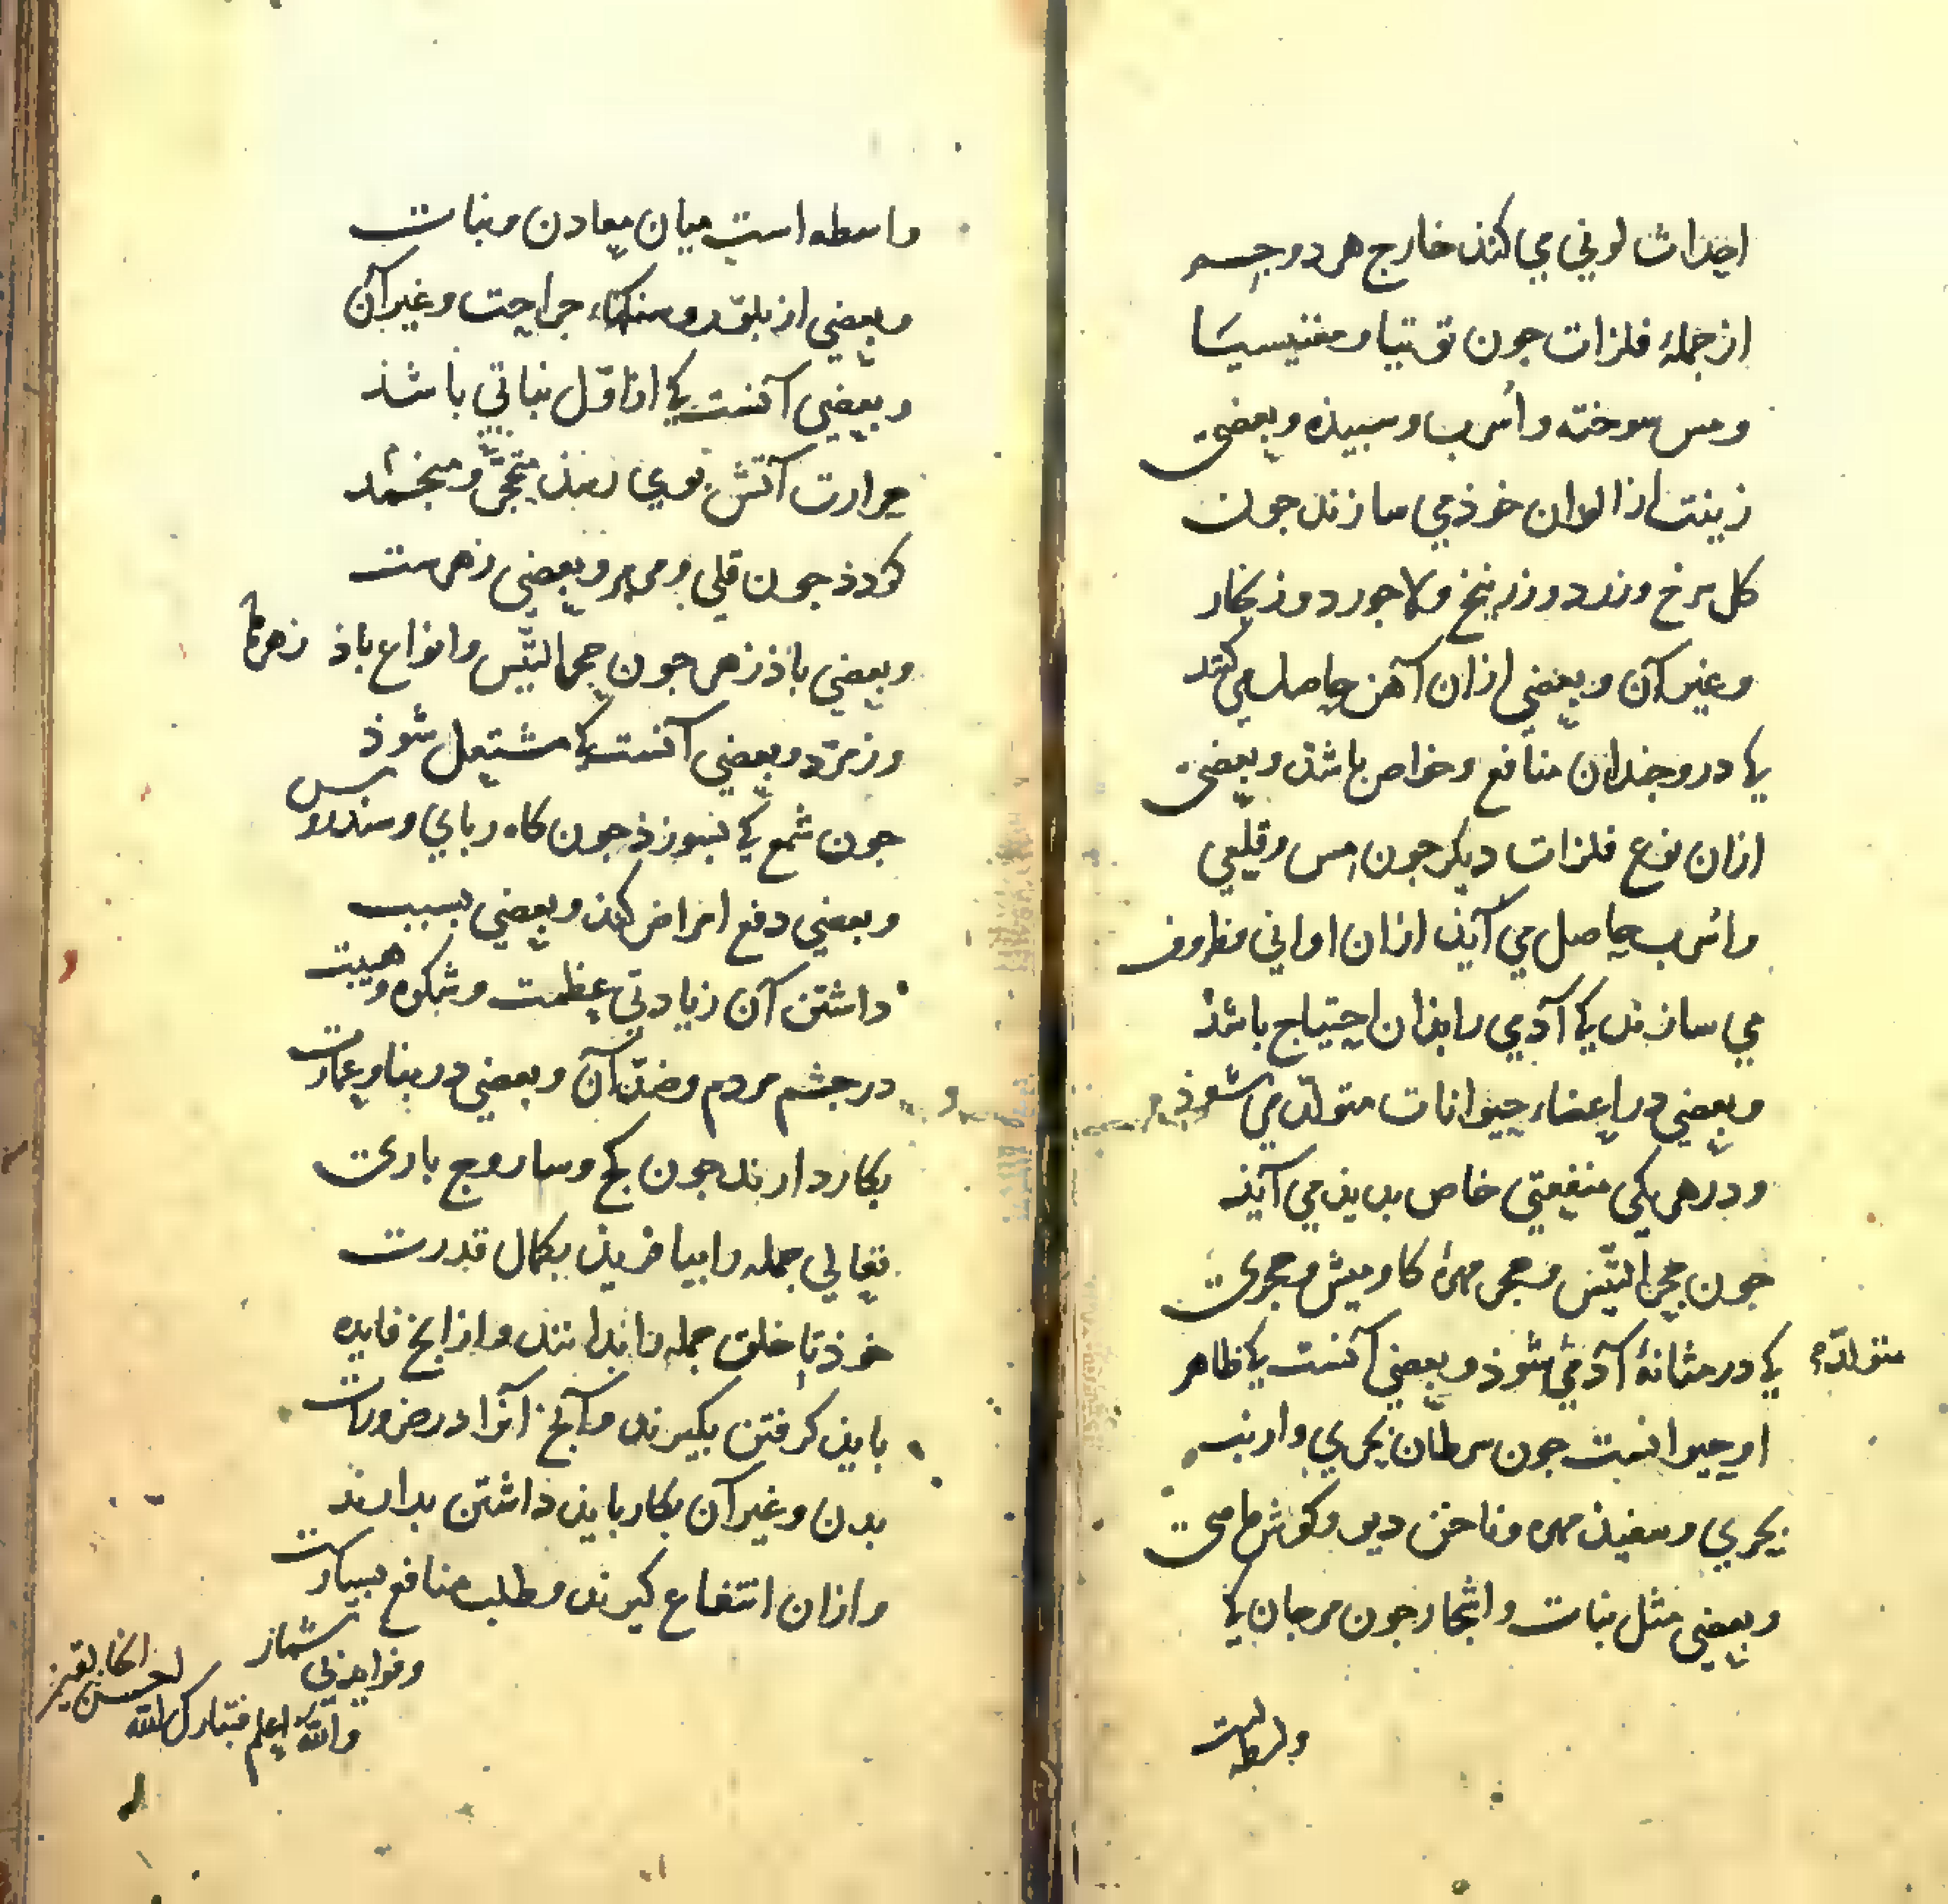 احداث لونی می کنذ خارج هر دو جسم
از جملهٔ فلزات جون توتیا و مغنیسیَا
ومس سوخته واُسرب وسبیذه وبعضی
زینت از الوان خوذ می سازند جون
کل سرخ وزرد وزرنیخ ولاجورد وزنکار
وغیر آن وبعضی ازان آهن حاصل می کند
کی درو جندان منافع وخواص باشذ وبعضی
ازان نوع فلزات دیکر جون مس وقلعی
واسرب حاصل می آیذ ازان اوانی وظروف
می سازند کی آدمی را بذان احتیاج باشذ
وبعضی در اعضاء حیوانات متولد می شوذ
ودر هر یکی منفعتی خاص بدیذ می آیذ
جون حجر التَّیس وحجر مهرهٔ کاومیش وحجری
کی در مثانهٔ آدمی شوذ وبعضی آنست کی ظاهر
متولّد
او حیوانست جون سرطان بحری وارنب
بحری وسفیذ مهره وناخن دیو وکوش ماهی
وبعضی مثل نبات واشجار جون مرجان کی
واسطه است
واسطه است میان معادن ونبات
وبعضی از بلّور وسنکهاء جراحت وغیر آن
وبعضی آنست کی از اوّل نباتی باشذ
حرارت آتش بوی رسذ متحجّر ومنجمد
کردذ جون قلی ومر وبعضی زهرست
وبعضی باذزهر جون حجر التَّیس وانواع باذ زهرها
وزمرّد وبعضی آنست کی مشتعل شوذ
جون شمع کی بسوزذ جون کاه ربای وسندروس
وبعضی دفع امراض کنذ وبعضی بسبب
داشتن آن زیادتی عظمت وشکوه وهیبت
در جشم مردم وضدّ آن وبعضی در بنا وعمارت
بکار دارند جون کج وساروج باری
تعالی جمله را بیافریذ بکمال قدرت
خوذ تا خلق جمله را بدانند واز انج فایده
بایذ کرفتن بکیرند وآنج آنرا در ضرورات
بدن وغیر آن بکار بایذ داشتن بدارند
وازان انتفاع کیرند وطلب منافع بسیارست
وفواید بی شمار
والله اعلم فتبارک الله احسن الخالقین